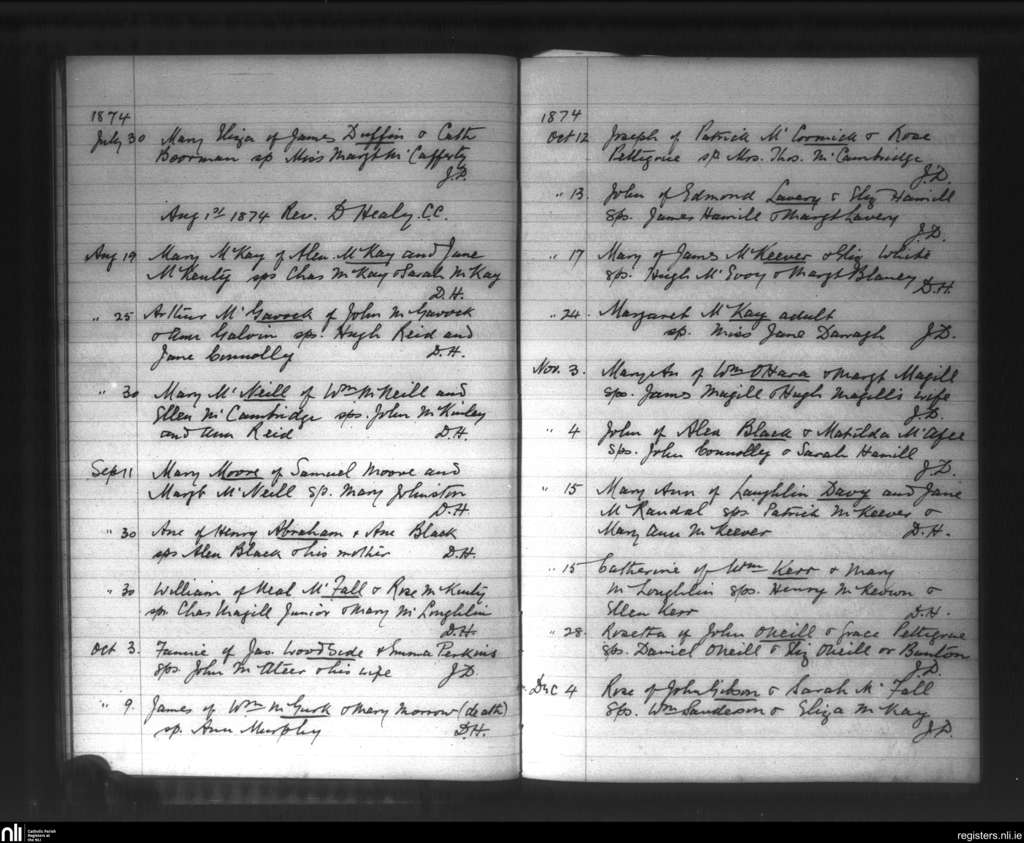 1874
July 30 Mary Eliza of James Duffin & Cath
Boorman sp Miss Margt McCafferty
J.D.
Aug 1st 1874 Rev. D Healy. C.C.
Aug 19 Mary McKay of Alex. McKay and Jane
McKenty sps Chas McKay & Sarah McKay
D.H.
" 25 Arthur McGavock of John McGavock
& Ann Galvin sps. Hugh Reid and
Jane Connolly D.H.
" 30 Mary McNeill of Wm McNeill and
Ellen McCambridge sps. John McKinley
and Ann Reid D.H.
Sep 11 Mary Moore of Samuel Moore and
Margt McNeill sp. Mary Johnston
D.H.
" 30 Ane of Henry Abraham & Ane Black
sps Alex Black & his mother D.H.
" 30 William of Neal McFall & Rose McKinty
sps. Chas Magill Junior & Mary McLoughlin
D.H.
Oct 3. Fannie of Jas. Woodside & Emma Perkins
sps. John McAteer & his wife J.D.
" 9. James of Wm McGurk & Mary Morrow (death)
sp. Ann Murphy D.H.
1874
Oct 12 Joseph of Patrick McCormick & Rose
Pettigrue sp. Mrs. Thos. McCambridge
J.D.
" 13. John of Edmond Lavery & Eliz Hamill
sps. James Hamill & Margt Lavery
J.D.
" 17 Mary of James McKeever & Eliz White
sps. Hugh McEvoy & Margt Blaney D.H.
" 24. Margaret McKay adult
sp. Miss Jane Darragh J.D.
Nov. 3. Mary An of Wm O'Hara & Margt Magill
sps. James Magill & Hugh Magill's wife
J.D.
" 4 John of Alex Black & Matilda McAfee
sps. John Connolley & Sarah Hamill
J.D.
" 15 Mary Ann of Laughlin Davy and Jane
McRandal sps Patrick McKeever &
Mary Ann McKeever D.H.
" 15 Catherine of Wm Kerr & Mary
McLoughlin sps. Henry McKeown &
Ellen Kerr D.H.
" 28. Rosetta of John ONeill & Grace Pettigrue
sps. Daniel ONeill & Eliz ONeill or Bunton
J.D.
Dec 4 Rose of John Gibson & Sarah McFall
sps. Wm Sandeson & Eliza McKay
J.D.
nli Catholic Parish
Registers at
the NLI
registers.nli.ie